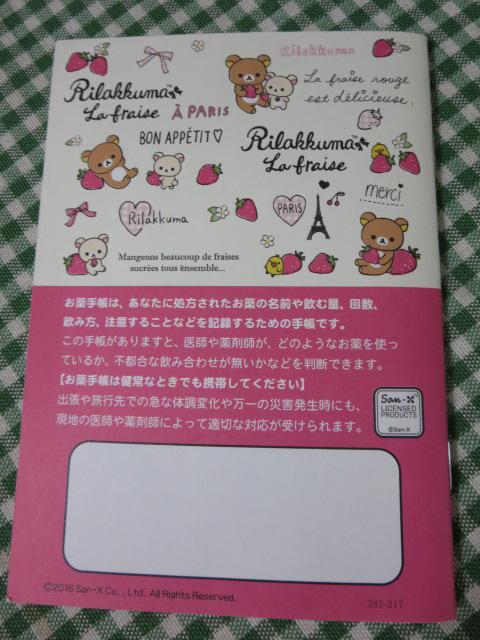 Rilakkuma
Rilakkuma™
La fraise À PARIS
La fraise rouge
est délicieuse.
BON APPÉTIT♡
Rilakkuma™
La fraise
Rilakkuma
PARIS
merci
Mangeons beaucoup de fraises
sucrées tous ensemble...
お薬手帳は、あなたに処方されたお薬の名前や飲む量、回数、
飲み方、注意することなどを記録するための手帳です。
この手帳がありますと、医師や薬剤師が、どのようなお薬を使っ
ているか、不都合な飲み合わせが無いかなどを判断できます。
【お薬手帳は健常なときでも携帯してください】
出張や旅行先での急な体調変化や万一の災害発生時にも、
現地の医師や薬剤師によって適切な対応が受けられます。
San-X
LICENSED
PRODUCTS
©San-X
©2016 San-X Co., Ltd. All Rights Reserved.
282-317